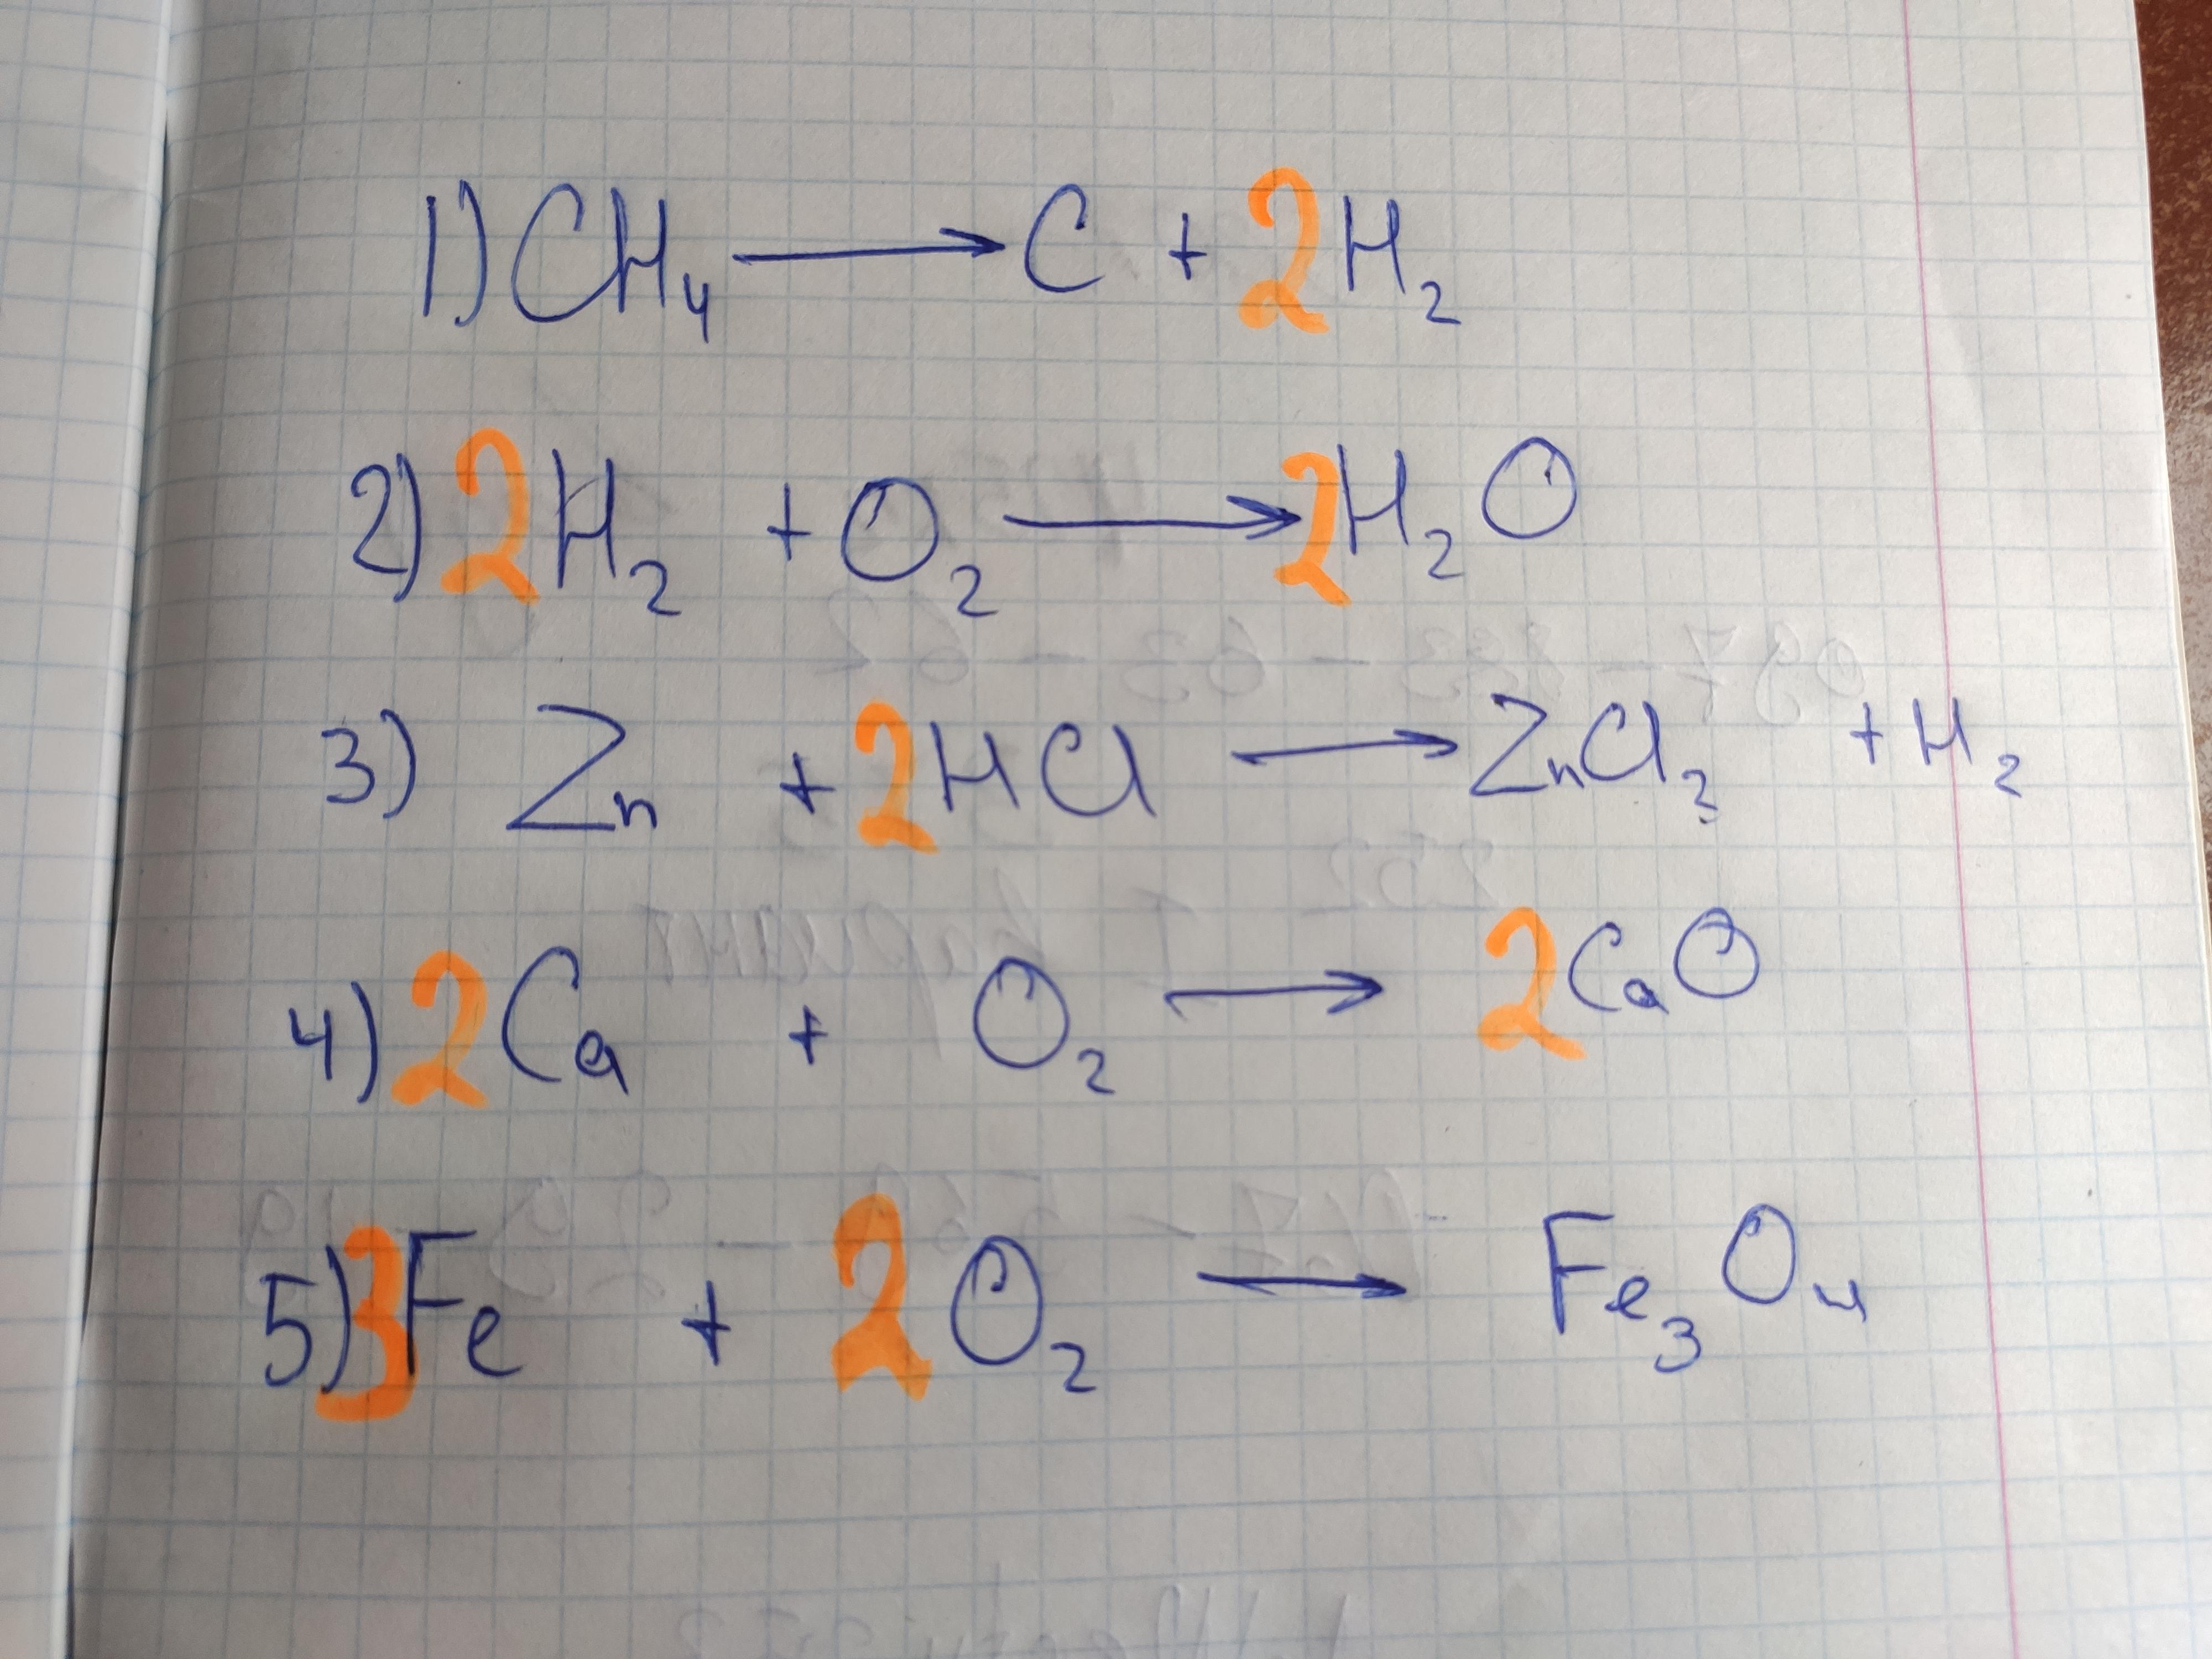 1) CH₄ → C + 2H₂
2) 2H₂ + O₂ → 2H₂O
3) Zn + 2HCl → ZnCl₂ + H₂
4) 2Ca + O₂ → 2CaO
5) 3Fe + 2O₂ → Fe₃O₄